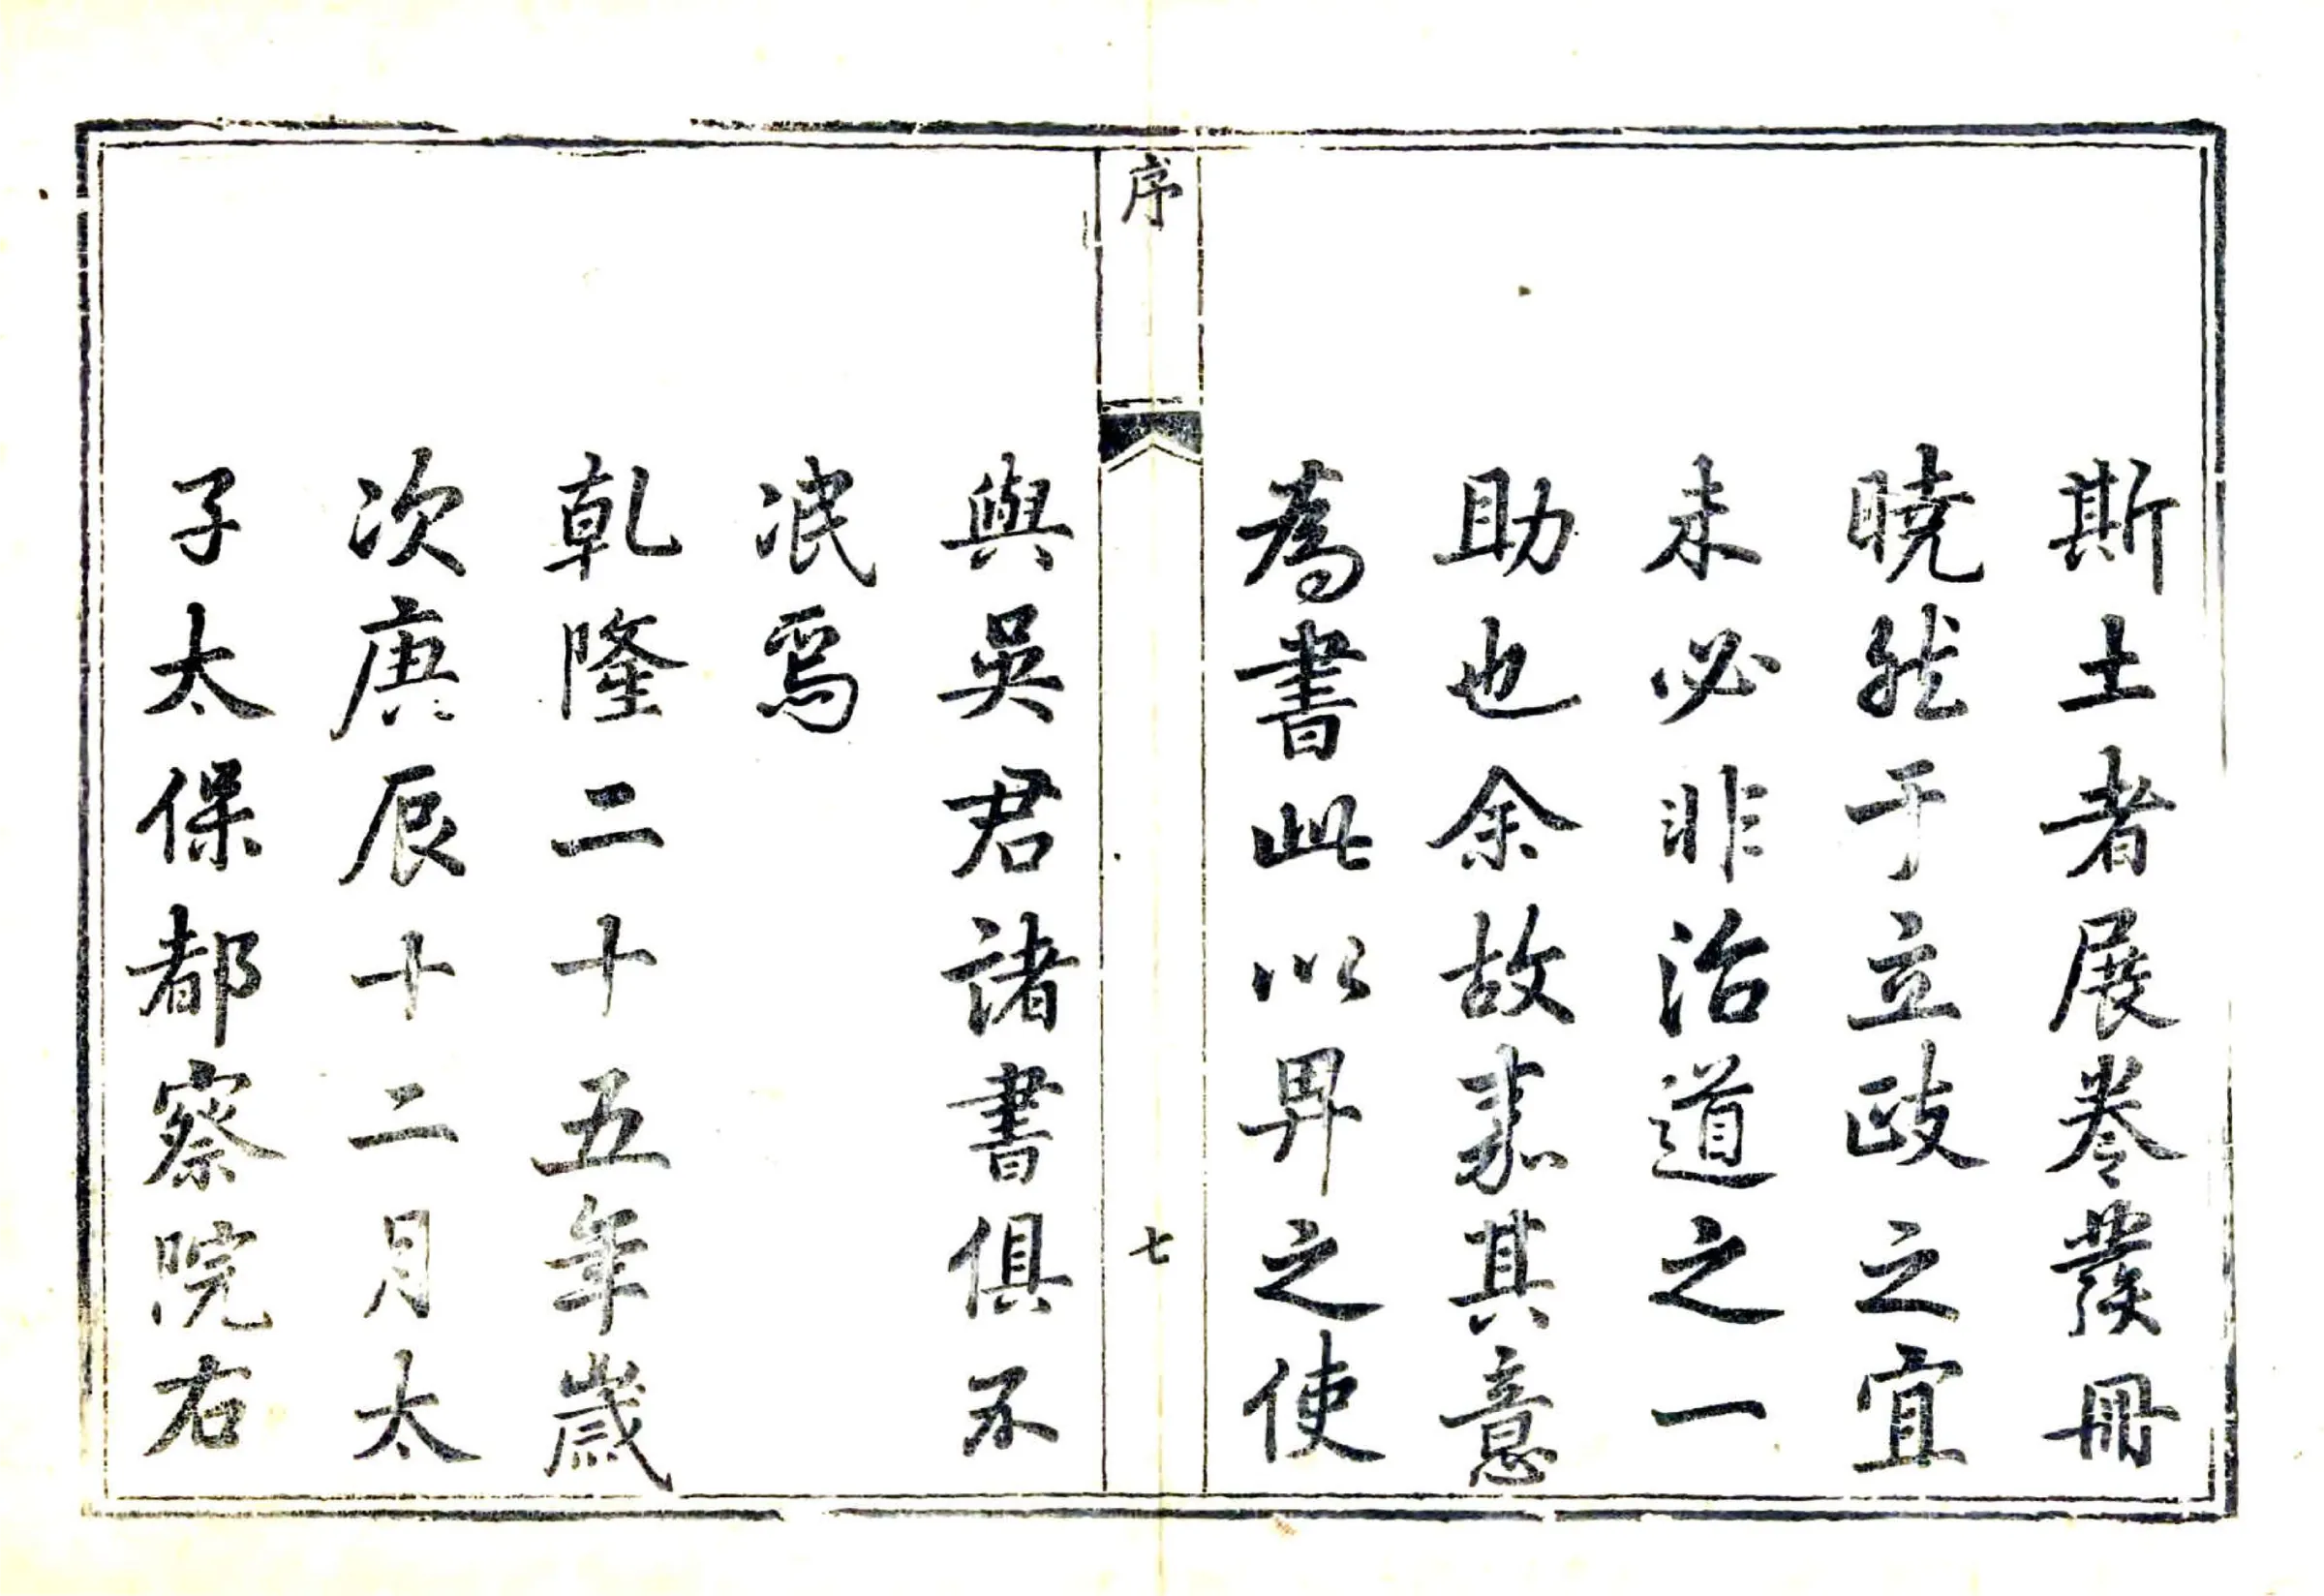 斯土者展卷發冊
曉然于立政之宜
未必非治道之一
助也余故嘉其意
為書此以畀之使
序
七
與吳君諸書俱不
泯焉
乾隆二十五年歲
次庚辰十二月太
子太保都察院右